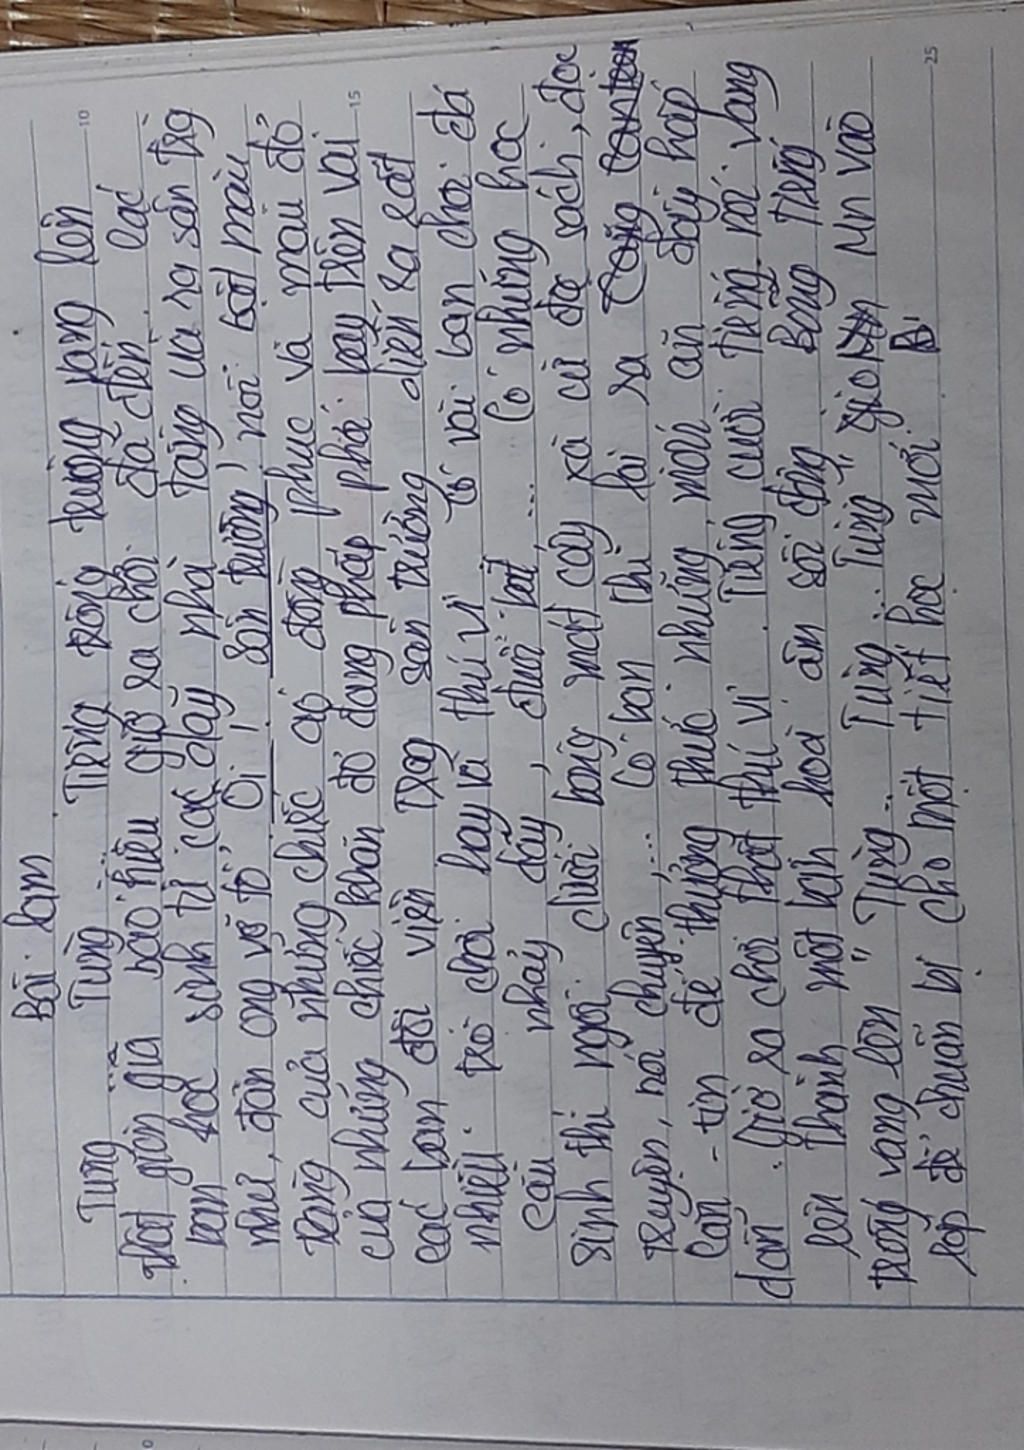 Bài làm
Tùng ... Tùng ... Tiếng trống trường vang lên
thật giòn giã báo hiệu giờ ra chơi đã đến. Các
bạn học sinh từ các dãy nhà tầng ùa ra sân trg
như đàn ong vỡ tổ. Ôi! Sân trường nổi bật màu
trắng của những chiếc áo đồng phục và màu đỏ
của những chiếc khăn đỏ đang phấp phới bay trên vai
các bạn đội viên. Trog sân trường diễn ra rất
nhiều trò chơi hay và thú vị. Từ vài bạn chơi đá
cầu, nhảy dây, đuổi bắt, ... Có những học
sinh thì ngồi dưới bóng mát cây xà cừ đọc sách, đọc
truyện, nói chuyện, ... Có bạn thì lại ra
căn - tin để thưởng thức những món ăn đầy hấp
dẫn. Giờ ra chơi thật thú vị. Tiếng cười, tiếng nói vang
lên thành một bản hoà âm sôi động. Bỗng tiếng
trống vang lên " Tùng ... Tùng ... Tùng " giờ Mn vào
lớp để chuẩn bị cho một tiết học mới
10
15
25